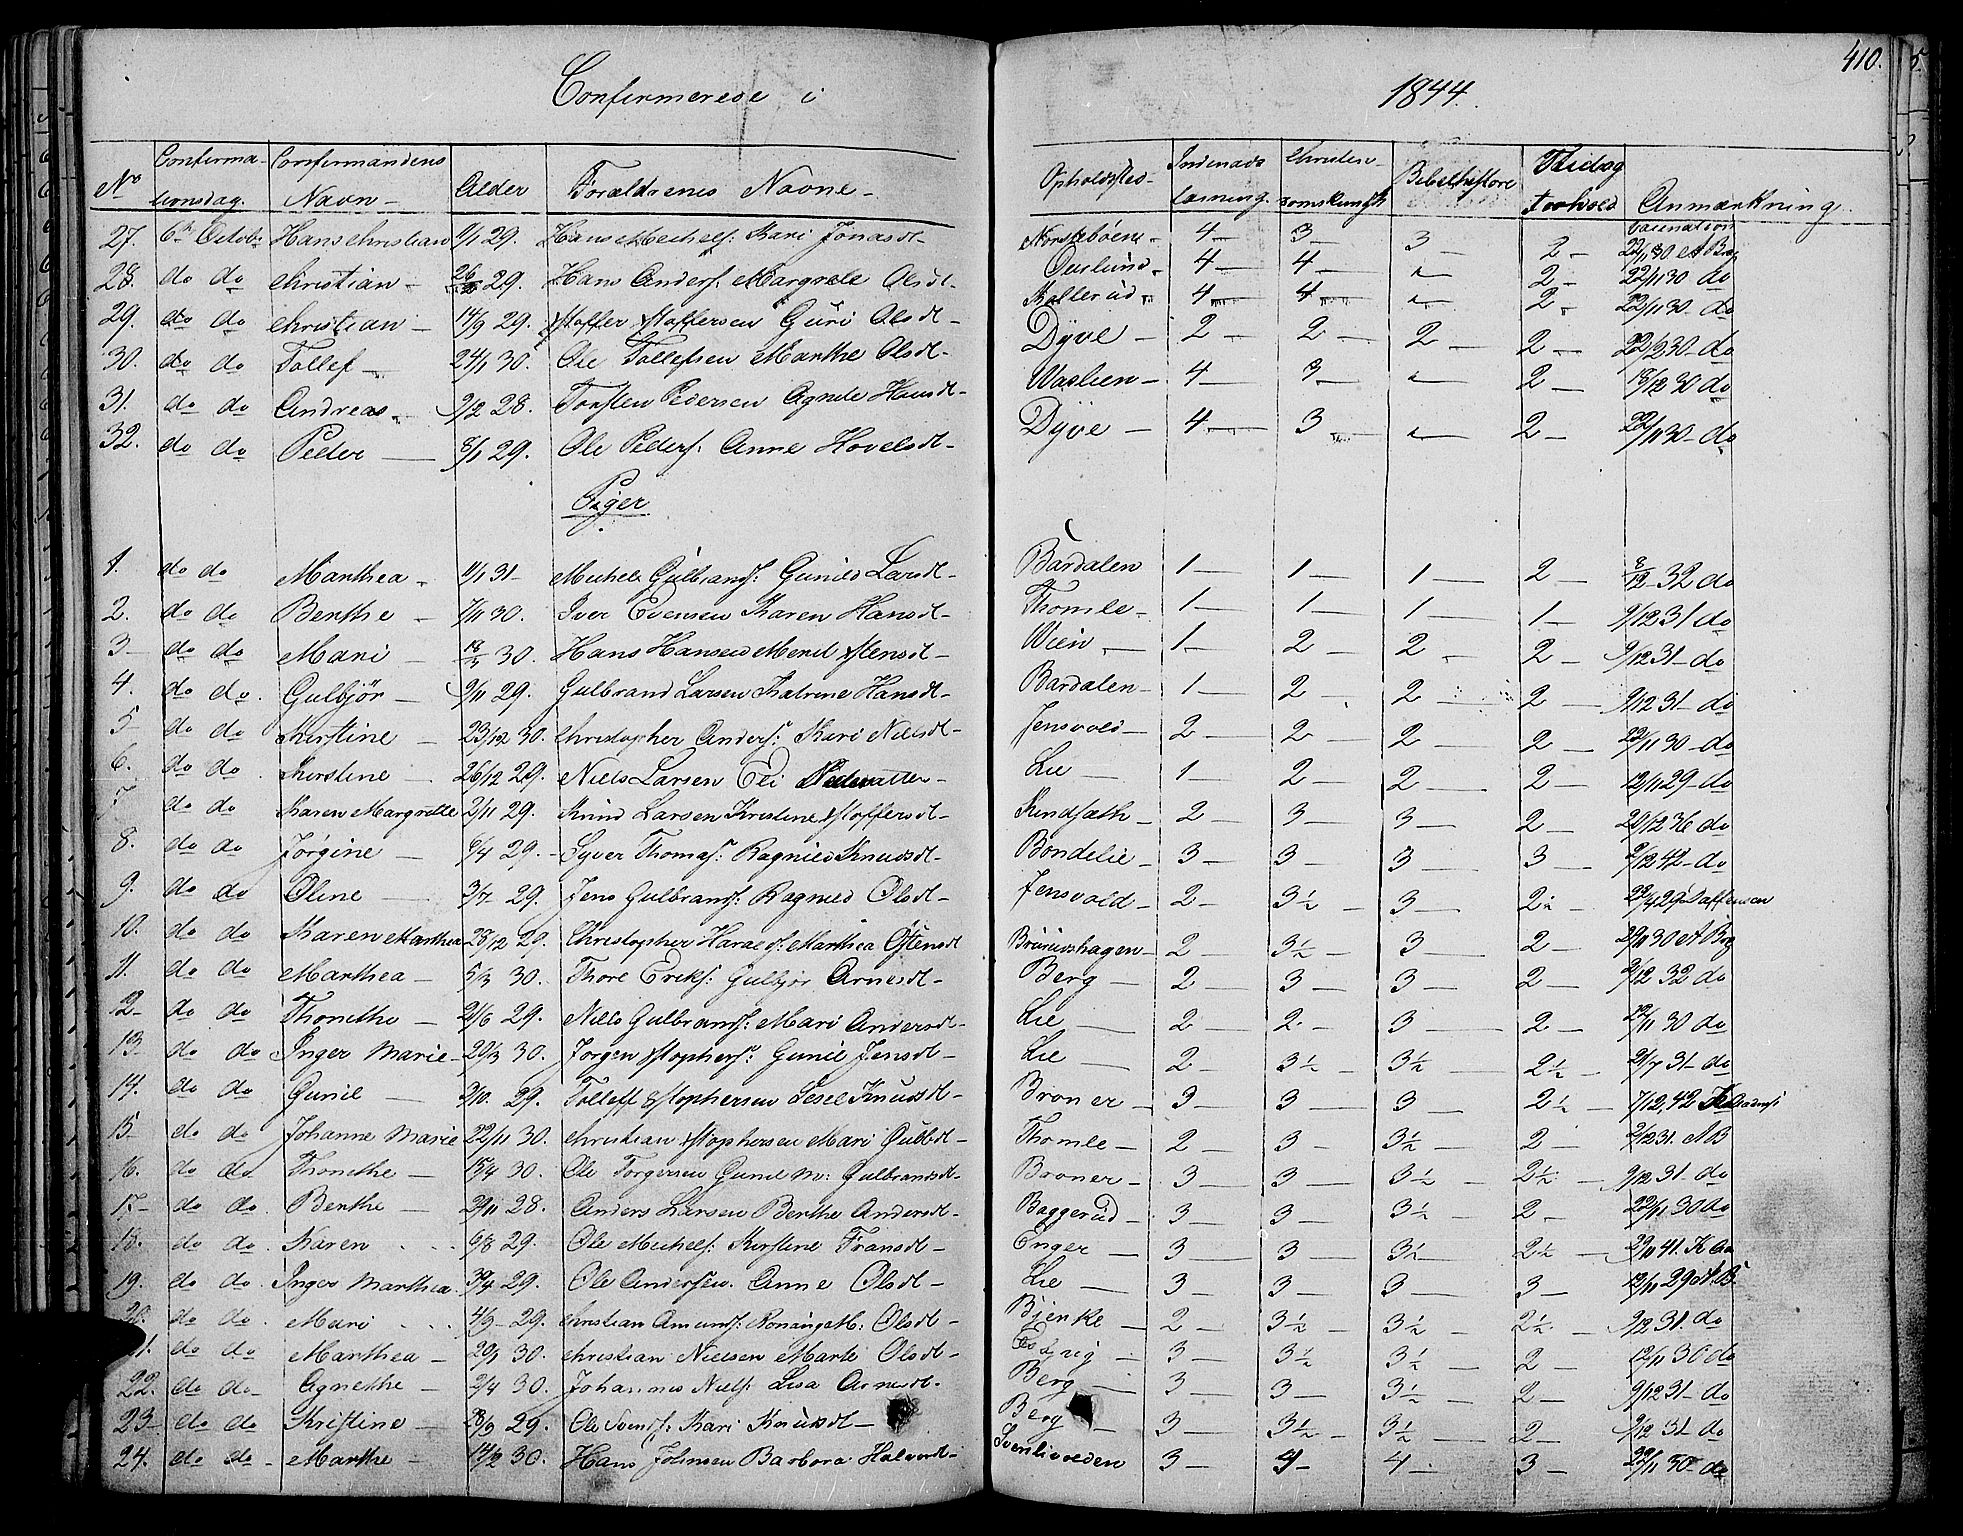 410.
Confirmerede i 1844.
No Confirmationsdag. Confirmandens Navn Alder Forældrenes Navne Opholdsted Indenads læsning. Christendomskundsk Bibelhistore Flid og Forhold Anmærkning
Vaccination
27. 6te Octobr Hans Christian 1/1 29. Hans Michels: Kari Jonasdt Norsteböen 4 3 3 2 22/11 30 A Berg
28. do do Christian 29. Hans Anders: Margrete Olsdt 4 4 2 22/11 30 do
29. do do Christian 14/9 29. Stoffer Stoffersen Guri Olsdt Kollerud 4 4 2 22/11 30 do
30. do do Tollef 24/1 30. Ole Tollefsen Marthe Olsdt Dÿve 2 2 2 2 22/2 30 do
31. do do Andreas 9/2 28. Torsten Pedersen Agnete Hansdt Waslien 4 3 2 13/12 30 do
32. do do Peder 8/1 29. Ole Peders: Anne Hovelsdt Dÿve 4 3 2 22/11 30 do
Piger
1. do do Marthea 11/1 31 Michel Gulbrands: Gunild Larsdt Bardalen 1 1 1 2 8/12 32 do
2. do do Berthe 7/11 30. Iver Evensen Karen Hansdt Thomle 1 1 1 1 9/12 31 do
3 do do Mari 30. Hans Hansen Merit Stensdt Wien 1 2 2 2 9/12 31 do
4. do do. Gulbjör 9/11 29. Gulbrand Larsen Katrine Hansdt Bardalen 1 2 2 2 9/12 31 do
5 do do Kirstine 23/12 30. Christopher Anders: Kari Nielsdt Jensvold 2 2 2 2 22/11 30 do
6. do do. Kirstine 26/12 29. Niels Larsen Eli Lie 1 2 2 2 12/11 29 do
7 do do Karen Margrethe 2/11 29. Knud Larsen Kirstine Stoffersdt Kindsæth 2 3 3 2 22/12 36 do
8. do do Jörgine 6/4 29. Syver Thomas: Ragnild Knudsdt Bondelie 3 3 3 3 2/12 42 do
9. do do Oline 3/7 29. Jens Gulbrands: Ragnild Olsdt Jensvold 2 3½ 3 2½ 22/4 29 Staffensen
10. do do Karen Marthea 28/12 29. Christopher Harals: Marthea Östensdt Bruuushagen 2 3½ 3 2 29/10 30 A Brg
11. do do Marthea 5/3 30. Thore Eriks: Gulbjör Arnesdt Berg 2 3 3 2 2/12 32 do
12 do do Thonethe 21/6 29. Niels Gulbrands: Mari Andersdt Lie 2 2 3 2 22/11 30 do
13 do do Inger Marie 29/3 30. Jörgen Stophers: Gunil Jensdt Lie 2 3½ 3½ 2½ 21/7 31 do
14. do do Gunil 3/10. 29. Tolleff Stophersen Sesel Knudsdt Broner 3 3 3 2½ 7/12, 42
15 do do Johanne Marie 22/11 30. Christian Stophersen Mari Gulbdt Thomle 2 3 3½ 2 2/12 31. AB
16. do do Thonethe 15/4 30. Ole Torgersen Gunil M: Gulbrandsdt Broner 3 3 3½ 2½ 9/12 31 do
17 do do. Berthe 29/11 28. Anders Larsen Berthe Andersdt Baggerud 3 3 3½ 2 22/11 30 do
18. do do. Karen 6/8 29. Ole Michels: Kirstine Fransdt Enger 3 3 3½ 2½ 29/10 41. K Aa
19. do do. Inger Marthea 30/4 29. Ole Andersen. Anne Olsdt Lie 3 3 3 3 12/11 29 A.B.
20. do do. Mari 4/3 29. Christian Amunds: Ronaug M: Olsdt Bjenke 2 3½ 3½ 2½ 9/12 31. do
21. do do Marthea 29/1 30. Christian Nielsen Marte Olsdt 3 3½ 3½ 2 12/11 30 do
22. do do Agnethe 2/4 30. Johannes Niels: Lisa Arnesdt. Berg 3 3 3½ 2 9/12 31 do
23 do do Kristine 28/3 29. Ole Svends: Kari Knudsdt Berg 3 3½ 3½ 2 9/12 31 do
24. do do Marthe 14/2 30. Hans Johnsen Barbora Halvordt Svenlivolden 3 4 4 3 22/11 30 do